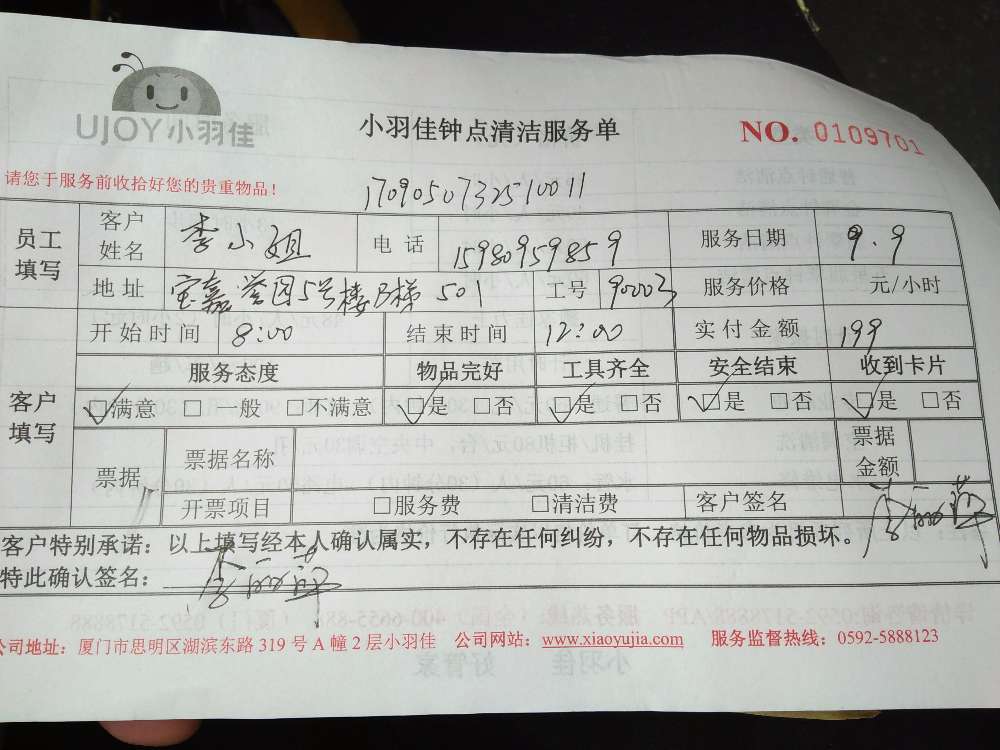 UJOY小羽佳
小羽佳钟点清洁服务单
NO. 0109701
请您于服务前收拾好您的贵重物品！
170905073251 0011
员工填写 客户姓名 李小姐 电话 15980959859 服务日期 9.9
地址 宝嘉誉园5号楼B梯 501 工号 90003 服务价格 元/小时
客户填写 开始时间 8:00 结束时间 12:00 实付金额 199
服务态度 物品完好 工具齐全 安全结束 收到卡片
☑满意 □一般 □不满意 ☑是 □否 ☑是 □否 ☑是 □否 ☑是 □否
票据 票据名称 票据金额
开票项目 □服务费 □清洁费 客户签名
客户特别承诺：以上填写经本人确认属实，不存在任何纠纷，不存在任何物品损坏。
特此确认签名：
公司地址：厦门市思明区湖滨东路 319 号 A 幢 2 层小羽佳 公司网站：www.xiaoyujia.com 服务监督热线：0592-5888123